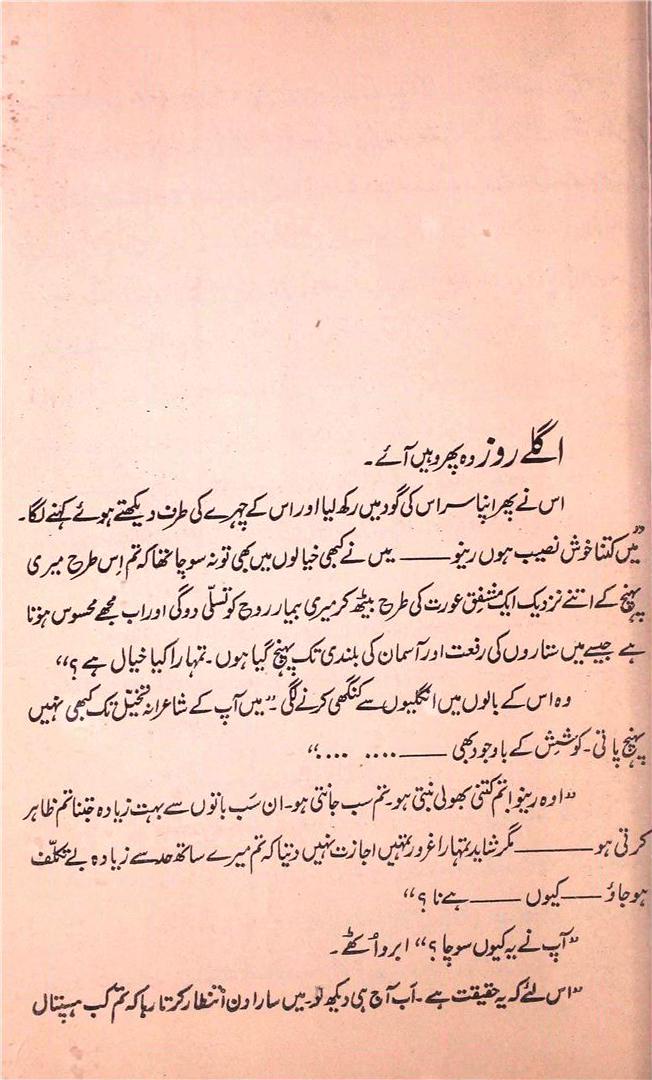 اگلے روز وہ پھر وہیں آئے۔
اس نے پھر اپنا سر اس کی گود میں رکھ لیا اور اس کے چہرے کی طرف دیکھتے ہوئے کہنے لگا۔
”میں کتنا خوش نصیب ہوں رینو —— میں نے کبھی خیالوں میں بھی تو نہ سوچا تھا کہ تم اِس طرح میری
پہنچ کے اتنے نزدیک ایک مشفق عورت کی طرح بیٹھ کر میری بیمار روح کو تسلّی دوگی اور اب مجھے محسوس ہوتا
ہے جیسے میں ستاروں کی رفعت اور آسمان کی بلندی تک پہنچ گیا ہوں۔ تمہارا کیا خیال ہے ؟“
وہ اس کے بالوں میں انگلیوں سے کنگھی کرنے لگی۔ ”میں آپ کے شاعرانہ تخیّل تک کبھی نہیں
پہنچ پاتی۔ کوشش کے باوجود بھی —— .... ....“
”اوہ رینو! تم کتنی بھولی بنتی ہو۔ تم سب جانتی ہو۔ ان سَب باتوں سے بہت زیادہ جتنا تم ظاہر
کرتی ہو —— مگر شاید تمہارا غرور تمہیں اجازت نہیں دیتا کہ تم میرے ساتھ حد سے زیادہ بے تکلّف
ہو جاؤ —— کیوں —— ہے نا ؟“
”آپ نے یہ کیوں سوچا ؟“ ابرو اُٹھے۔
”اس لئے کہ یہ حقیقت ہے۔ اَب آج ہی دیکھ لو۔ میں سارا دن انتظار کرتا رہا کہ تم کب ہسپتال